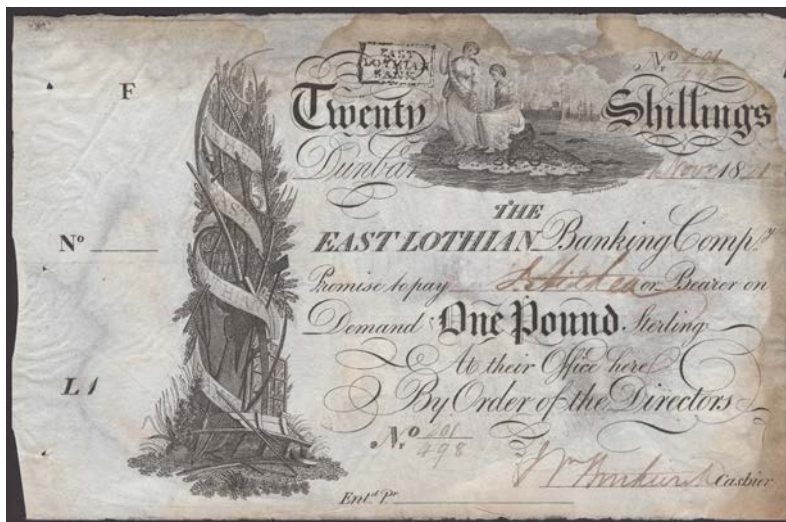 F
EAST
LOTHIAN
BANK
No. 201
498
Twenty Shillings
Dunbar Novr. 18
THE
EAST LOTHIAN Banking Compy.
Promise to pay or Bearer on
No
Demand One Pound Sterling
At their Office here
L1
By Order of the Directors
No. 201
498
Cashier
Entd. Pr.